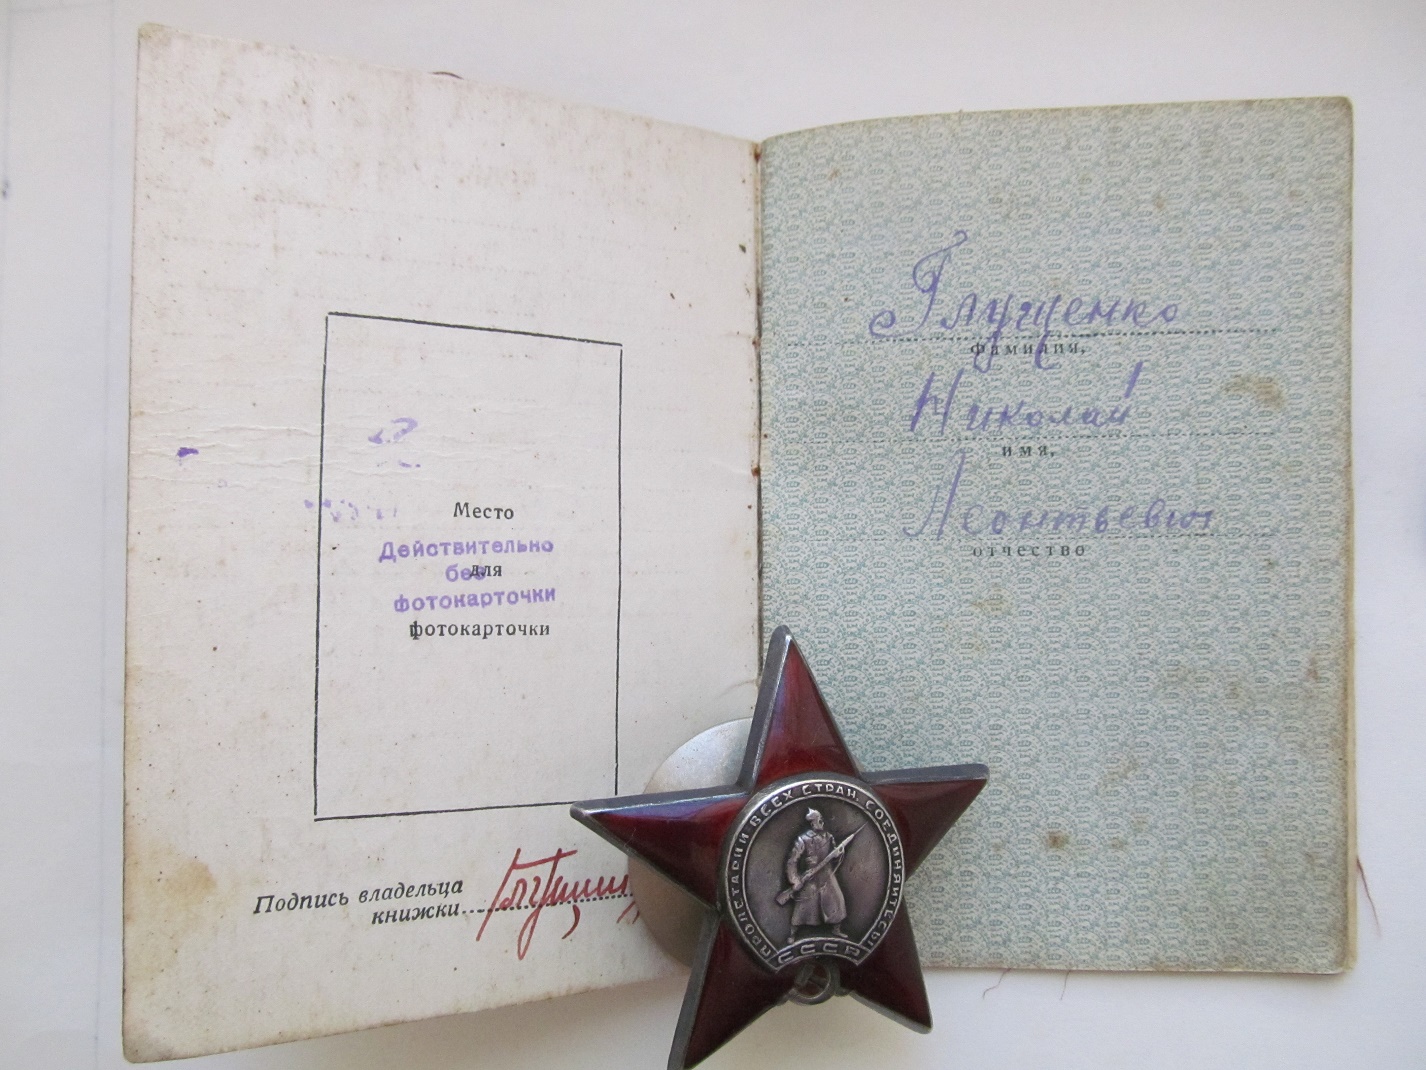 Место
Действительно
без
для
фотокарточки
фотокарточки
Подпись владельца
книжки
Глущенко
фамилия,
Николай
имя,
Леонтьевич
отчество
ПРОЛЕТАРИИ ВСЕХ СТРАН, СОЕДИНЯЙТЕСЬ!
СССР